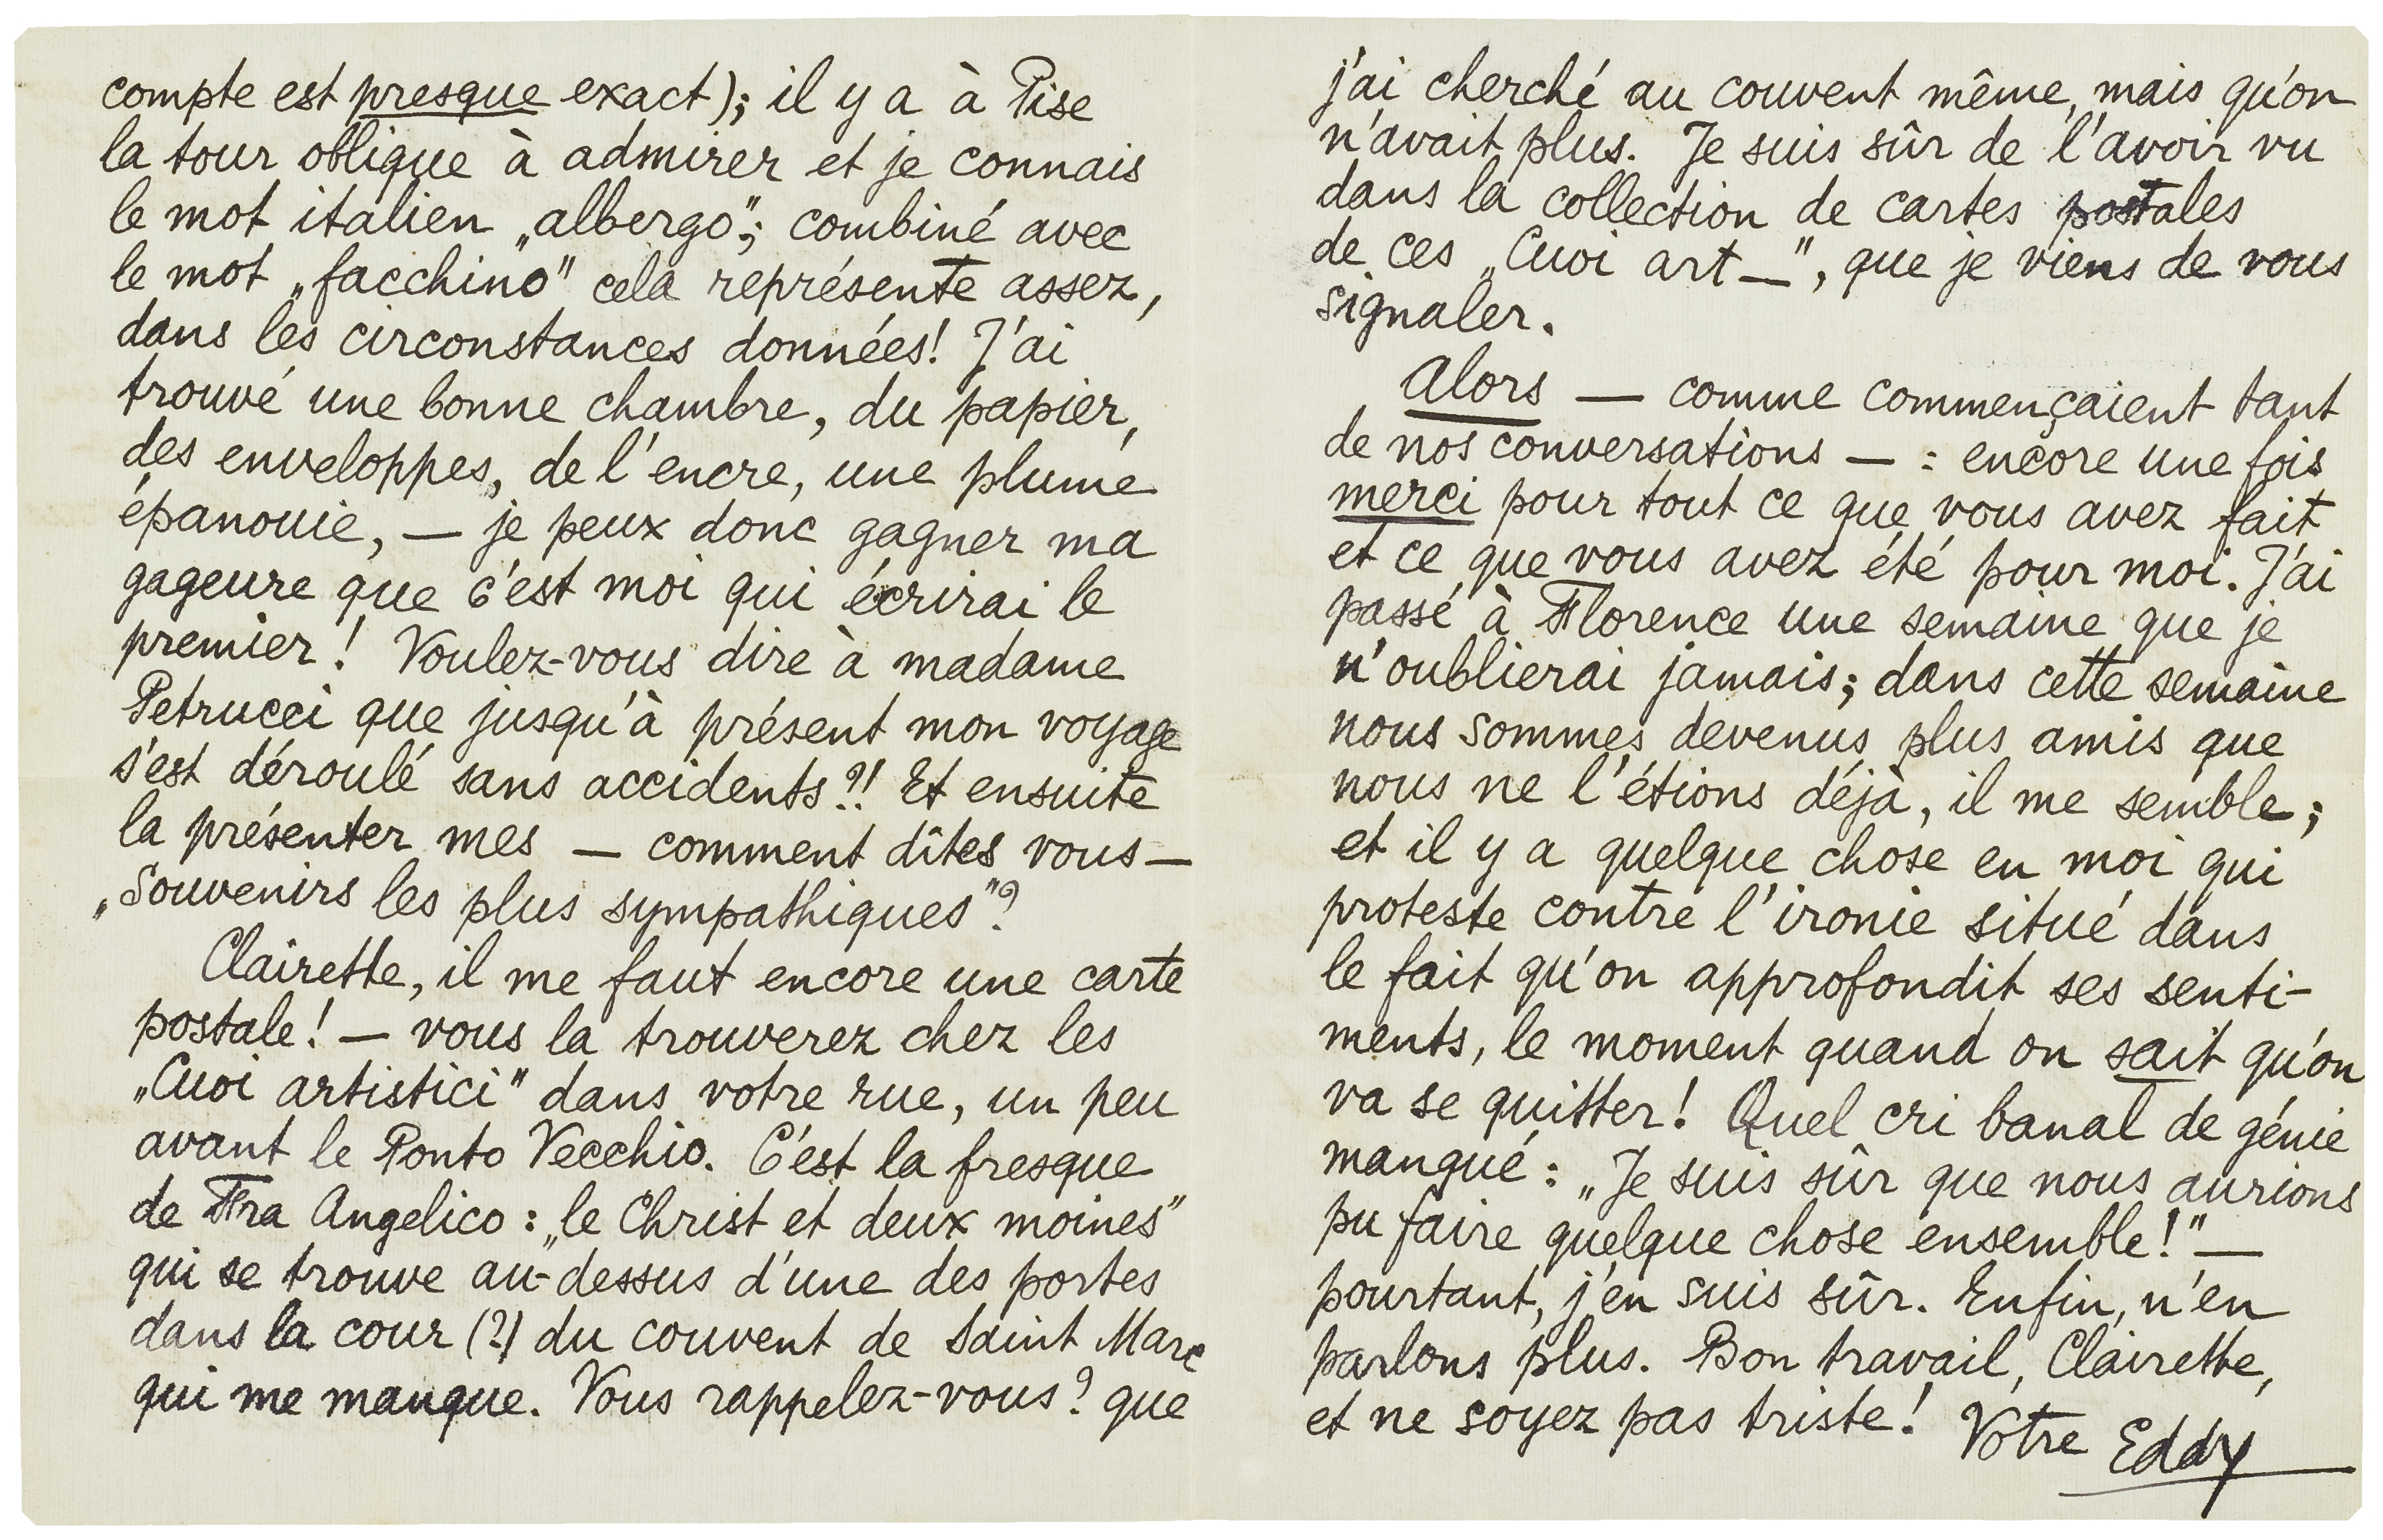 compte est presque exact); il y a à Pise
la tour oblique à admirer et je connais
le mot italien „albergo"; combiné avec
le mot „facchino" cela représente assez,
dans les circonstances données! J'ai
trouvé une bonne chambre, du papier,
des enveloppes, de l'encre, une plume
épanouie, — je peux donc gagner ma
gageure que c'est moi qui écrirai le
premier! Voulez-vous dire à madame
Petrucci que jusqu'à présent mon voyage
s'est déroulé sans accidents?! Et ensuite
la présenter mes — comment dîtes vous —
„Souvenirs les plus sympathiques"?
Clairette, il me faut encore une carte
postale! — vous la trouverez chez les
„Cuoi artistici" dans votre rue, un peu
avant le Ponto Vecchio. C'est la fresque
de Fra Angelico: „le Christ et deux moines"
qui se trouve au-dessus d'une des portes
dans la cour (?) du couvent de Saint Marc
qui me manque. Vous rappelez-vous? que
j'ai cherché au couvent même, mais qu'on
n'avait plus. Je suis sûr de l'avoir vu
dans la collection de cartes postales
de ces „Cuoi art—", que je viens de vous
signaler.
Alors — comme commençaient tant
de nos conversations — : encore une fois
merci pour tout ce que vous avez fait
et ce que vous avez été pour moi. J'ai
passé à Florence une semaine que je
n'oublierai jamais; dans cette semaine
nous sommes devenus plus amis que
nous ne l'étions déjà, il me semble;
et il y a quelque chose en moi qui
proteste contre l'ironie situé dans
le fait qu'on approfondit ses senti-
ments, le moment quand on sait qu'on
va se quitter! Quel cri banal de génie
manqué: „Je suis sûr que nous aurions
pu faire quelque chose ensemble!" —
pourtant, j'en suis sûr. Enfin, n'en
parlons plus. Bon travail, Clairette,
et ne soyez pas triste! Votre Eddy